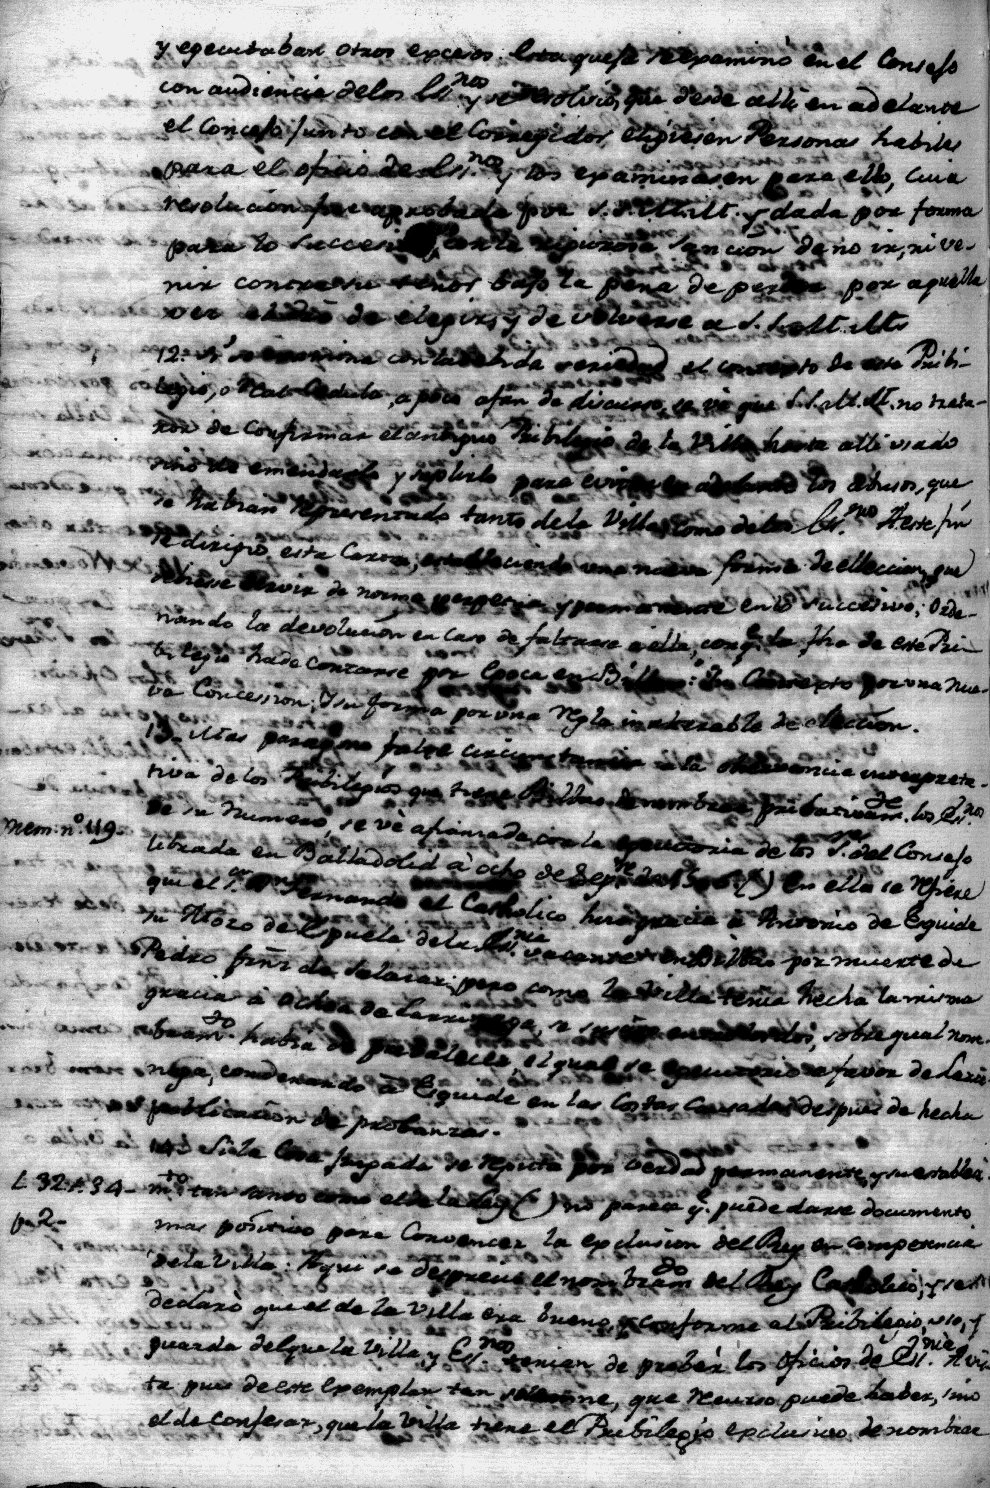 y egecutaban otros excesos: Esta quefa se examinó en el Consejo
con audiencia de los Es.nos y se resolvió, que desde alli en adelante
el Concejo junto con el Corregidor, eligiesen Personas habiles
para el oficio de Es.nos y los examinasen para ello, cuia
resolucion fue aprobada por S.S. M.M. y dada por forma
para lo succesivo con la rigurosa sancion de no ir, ni ve-
nir contra su tenor bajo la pena de perder por aquella
vez el dro de elegir, y de volverse a S.S. M.M.
12. Si se examina con la debida seriedad el contexto de este Pribi-
legio, o Real Cedula, a poco afan de discurso, se vé que S.S. M.M. no trata-
ron de confirmar el antiguo Pribilegio de la Villa hasta alli usado
sino de emendarlo y suplirlo para evitar en adelante los abusos, que
se habian representado tanto de la Villa, como de los Es.nos A este fin
se dirigió esta Carta, estableciendo una nueva forma de eleccion, que
debiese servir de norma perpetua y permanente en lo succesivo; orde-
nando la devolucion en caso de faltarse a ella, con q.e la fha de este Pri-
bilegio ha de contarse por Epoca en Bilbao: Su Contexto por una nue-
va Concession: Y su forma por una regla inalterable de eleccion.
13. Mas para que falte circunstancia a la observancia interpreta-
tiva de los Pribilegios que tiene Bilbao de nombrar pribativam.te los Es.nos
de su Numero, se vé afianzada con la egecutoria de los S.res del Consejo
Mem. n.o 119. librada en Balladolid à ocho de Sep.re de 15 (*) En ella se refiere
que el S.or D.n Fernando el Catholico hizo gracia à Antonio de Eguide
su Mozo de Espuela de la Es.nia vacante en Bilbao por muerte de
Pedro frñz de Salazar; pero como la Villa tenia hecha la misma
gracia à Ochoa de Larrinaga, se suscitó entre los dos, sobre qual nom-
bram.to habia de prevalecer, el qual se egecutorió a favor de Larri-
naga, condenando à Eguide en las Costas causadas despues de hecha
publicacion de probanzas.
14. Si la Cosa juzgada se reputa por verdad permanente, y su estableci-
L. 32 t. 34 m.to tan santo como el de la Ley (*) no parece q.e puede darse documento
p. 2.
mas positivo para Convencer la exclusion del Rey en competencia
de la Villa. Aqui se desprecia el nombram.to del Rey Catholico; y se
declaró que el de la Villa era bueno, y conforme al Pribilegio, uso, y
guarda del que la Villa, y Es.nos tenian de proveer los oficios de Es.nia A vis-
ta pues de este Exemplar tan solemne, que recurso puede haber, sino
el de confesar, que la Villa tiene el Pribilegio exclusivo de nombrar